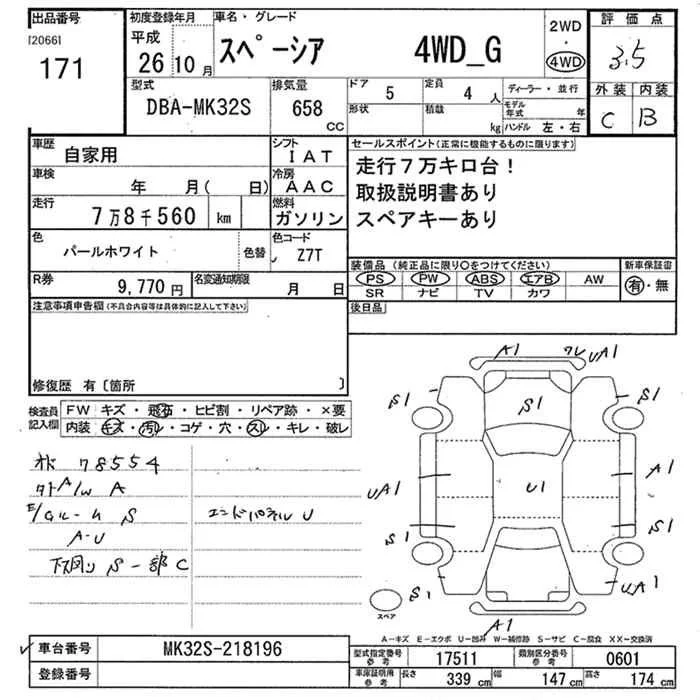 出品番号
[2066]
171
初度登録年月
平成
26年10月
車名・グレード
スペーシア 4WD_G
2WD
・
4WD
評価点
3.5
外装 内装
C B
型式
DBA-MK32S
排気量
658
CC
ドア 5
定員 4 人
形状
積載 kg
ディーラー・並行
モデル年式 年
ハンドル 左・右
車歴 自家用
シフト IAT
車検 年 月( 日)
冷房 AAC
走行 7万8千560 km
燃料 ガソリン
色 パールホワイト 色替
色コード Z7T
R券 9,770円
名変通知期限 月 日
セールスポイント(正常に機能するものに限ります)
走行7万キロ台!
取扱説明書あり
スペアキーあり
装備品(純正品に限り○をつけてください)
新車保証書
PS PW ABS エアB AW
SR ナビ TV カワ
有・無
後日品
注意事項申告欄(不具合内容等は具体的に記入して下さい)
修復歴 有〔箇所 〕
検査員記入欄
FW キズ・飛石・ヒビ割・リペア跡・×要
内装 キズ・汚レ・コゲ・穴・スレ・キレ・破レ
78554
A/W A
S
エンドパネル U
A-U
下廻り S 一部 C
A1
UA1
S1
S1
S1
UA1
U1
A1
S1
S1
S1
UA1
A1
スペア
A-キズ E-エクボ U-凹み W-補修跡 S-サビ C-腐食 XX-交換済
車台番号 MK32S-218196
登録番号
型式指定番号 参考 17511
類別区分番号 参考 0601
車庫証明用 参考 長さ 339 cm 幅 147 cm 高さ 174 cm